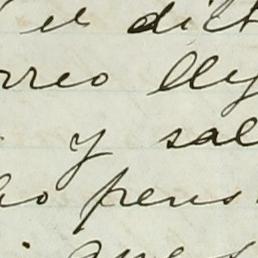 el dict
rreo lle
y sal
ho pens
que